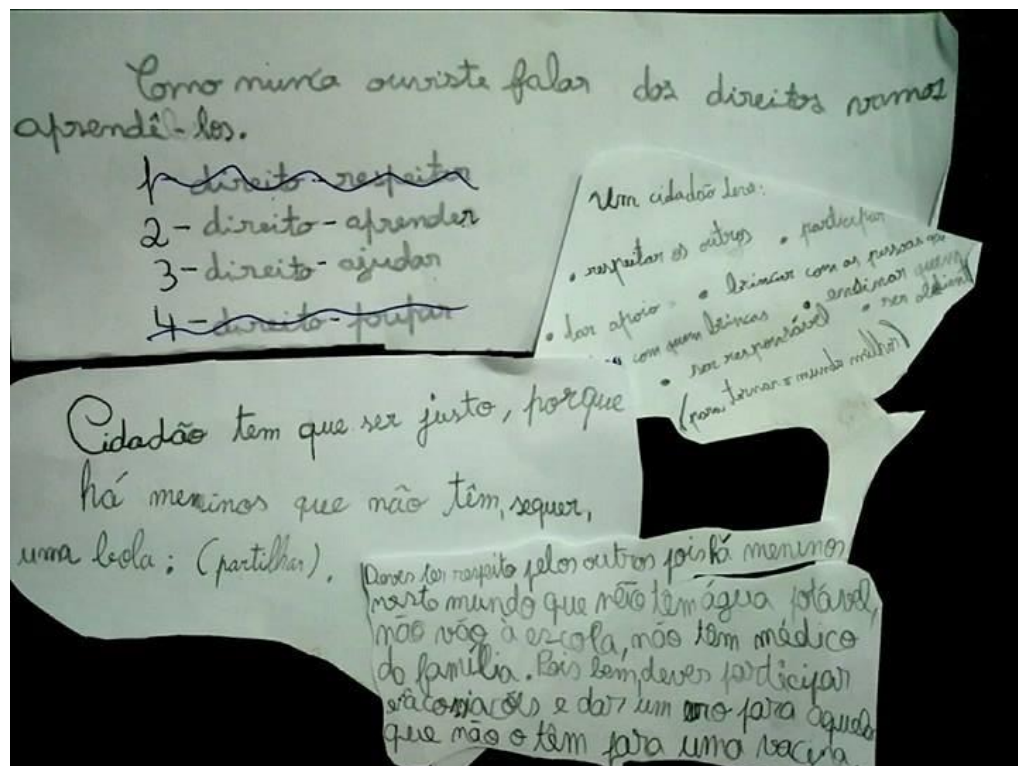 Como nunca ouviste falar dos direitos vamos
aprendê-los.
1-direito-respeitar
2-direito-aprender
3-direito-ajudar
4-direito-poupar
Um cidadão deve:
• respeitar os outros • participar
• dar apoio • brincar com as pessoas
com quem brincas • ensinar quem
• ser responsável • ser obediente
(para tornar o mundo melhor)
Cidadão tem que ser justo, porque
há meninos que não têm, sequer,
uma bola; (partilhar).
Deves ter respeito pelos outros pois há meninos
neste mundo que não têm água potável,
não vão à escola, não têm médico
do família. Pois bem, deves participar
e dar um para aqueles
que não o têm para uma vacina.